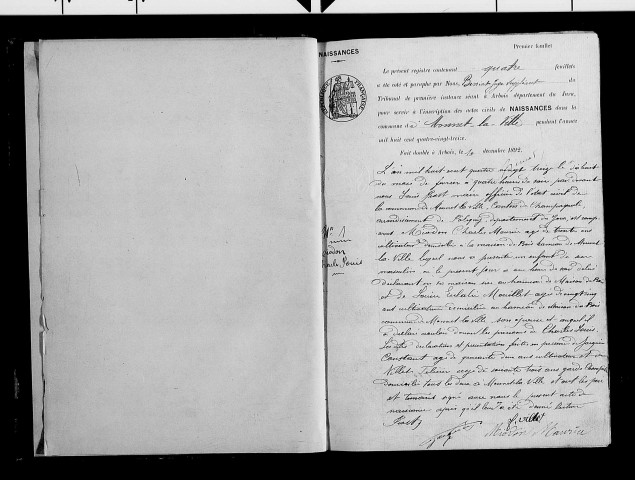 Premier feuillet
NAISSANCES
Le présent registre contenant quatre feuillets
a été coté et paraphé par Nous, Juge Suppléant du
Tribunal de première instance séant à Arbois département du Jura,
pour servir à l'inscription des actes civils de NAISSANCES dans la
commune de Monnet-la-Ville, pendant l'année
mil huit cent quatre-vingt-treize.
Fait double à Arbois, le décembre 1892.
L'an mil huit cent quatre vingt treize le
du mois de janvier à quatre heures du soir par devant
nous Louis maire officier de l'état civil de
la commune de Monnet la Ville Canton de Champagnole,
arrondissement de Poligny département du Jura, est comp
arus Miodon Charles Maurice agé de trente ans
cultivateur domicilié à la maison du Bois hameau de Monnet
la Ville lequel nous a présenté un enfant du sexe
masculin né le présent jour à une heure du soir
déclarant en sa maison au hameau de Maison du Bois
et de Louise Eulalie Monillet agée de vingt cinq
ans cultivatrice domiciliée au hameau de Maison du Bois
commune de Monnet la Ville son épouse et auquel il
a déclaré vouloir donner les prénoms de Charles Louis.
Les dites déclaration et présentation faites en présence de
Constant agé de quarante deux ans cultivateur et de
Villet agé de soixante trois ans garde Champêtre
domiciliés tous les deux à Monnet la Ville et ont les père
et témoins signé avec nous le présent acte de
naissance après qu'il leur a été donné lecture
N° 1
Miodon
Charles Louis
Villet
Miodon Maurice